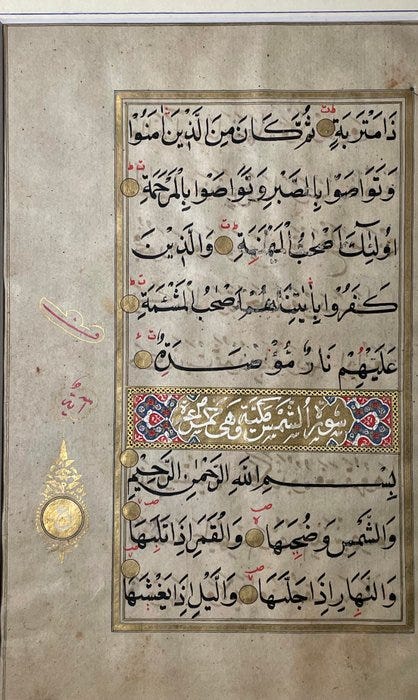 ذَا مَتْرَبَةٍ ثُمَّ كَانَ مِنَ الَّذِينَ اٰمَنُوا
وَتَوَاصَوْا بِالصَّبْرِ وَتَوَاصَوْا بِالْمَرْحَمَةِ
اُولٰئِكَ اَصْحٰبُ الْمَيْمَنَةِ وَالَّذِينَ
كَفَرُوا بِاٰيٰتِنَا هُمْ اَصْحٰبُ الْمَشْئَمَةِ
عَلَيْهِمْ نَارٌ مُؤْصَدَةٌ
سورة الشمس مكية وهى خمس عشر
بِسْمِ اللّٰهِ الرَّحْمٰنِ الرَّحِيمِ
وَالشَّمْسِ وَضُحٰيهَا وَالْقَمَرِ اِذَا تَلٰيهَا
وَالنَّهَارِ اِذَا جَلّٰيهَا وَالَّيْلِ اِذَا يَغْشٰيهَا